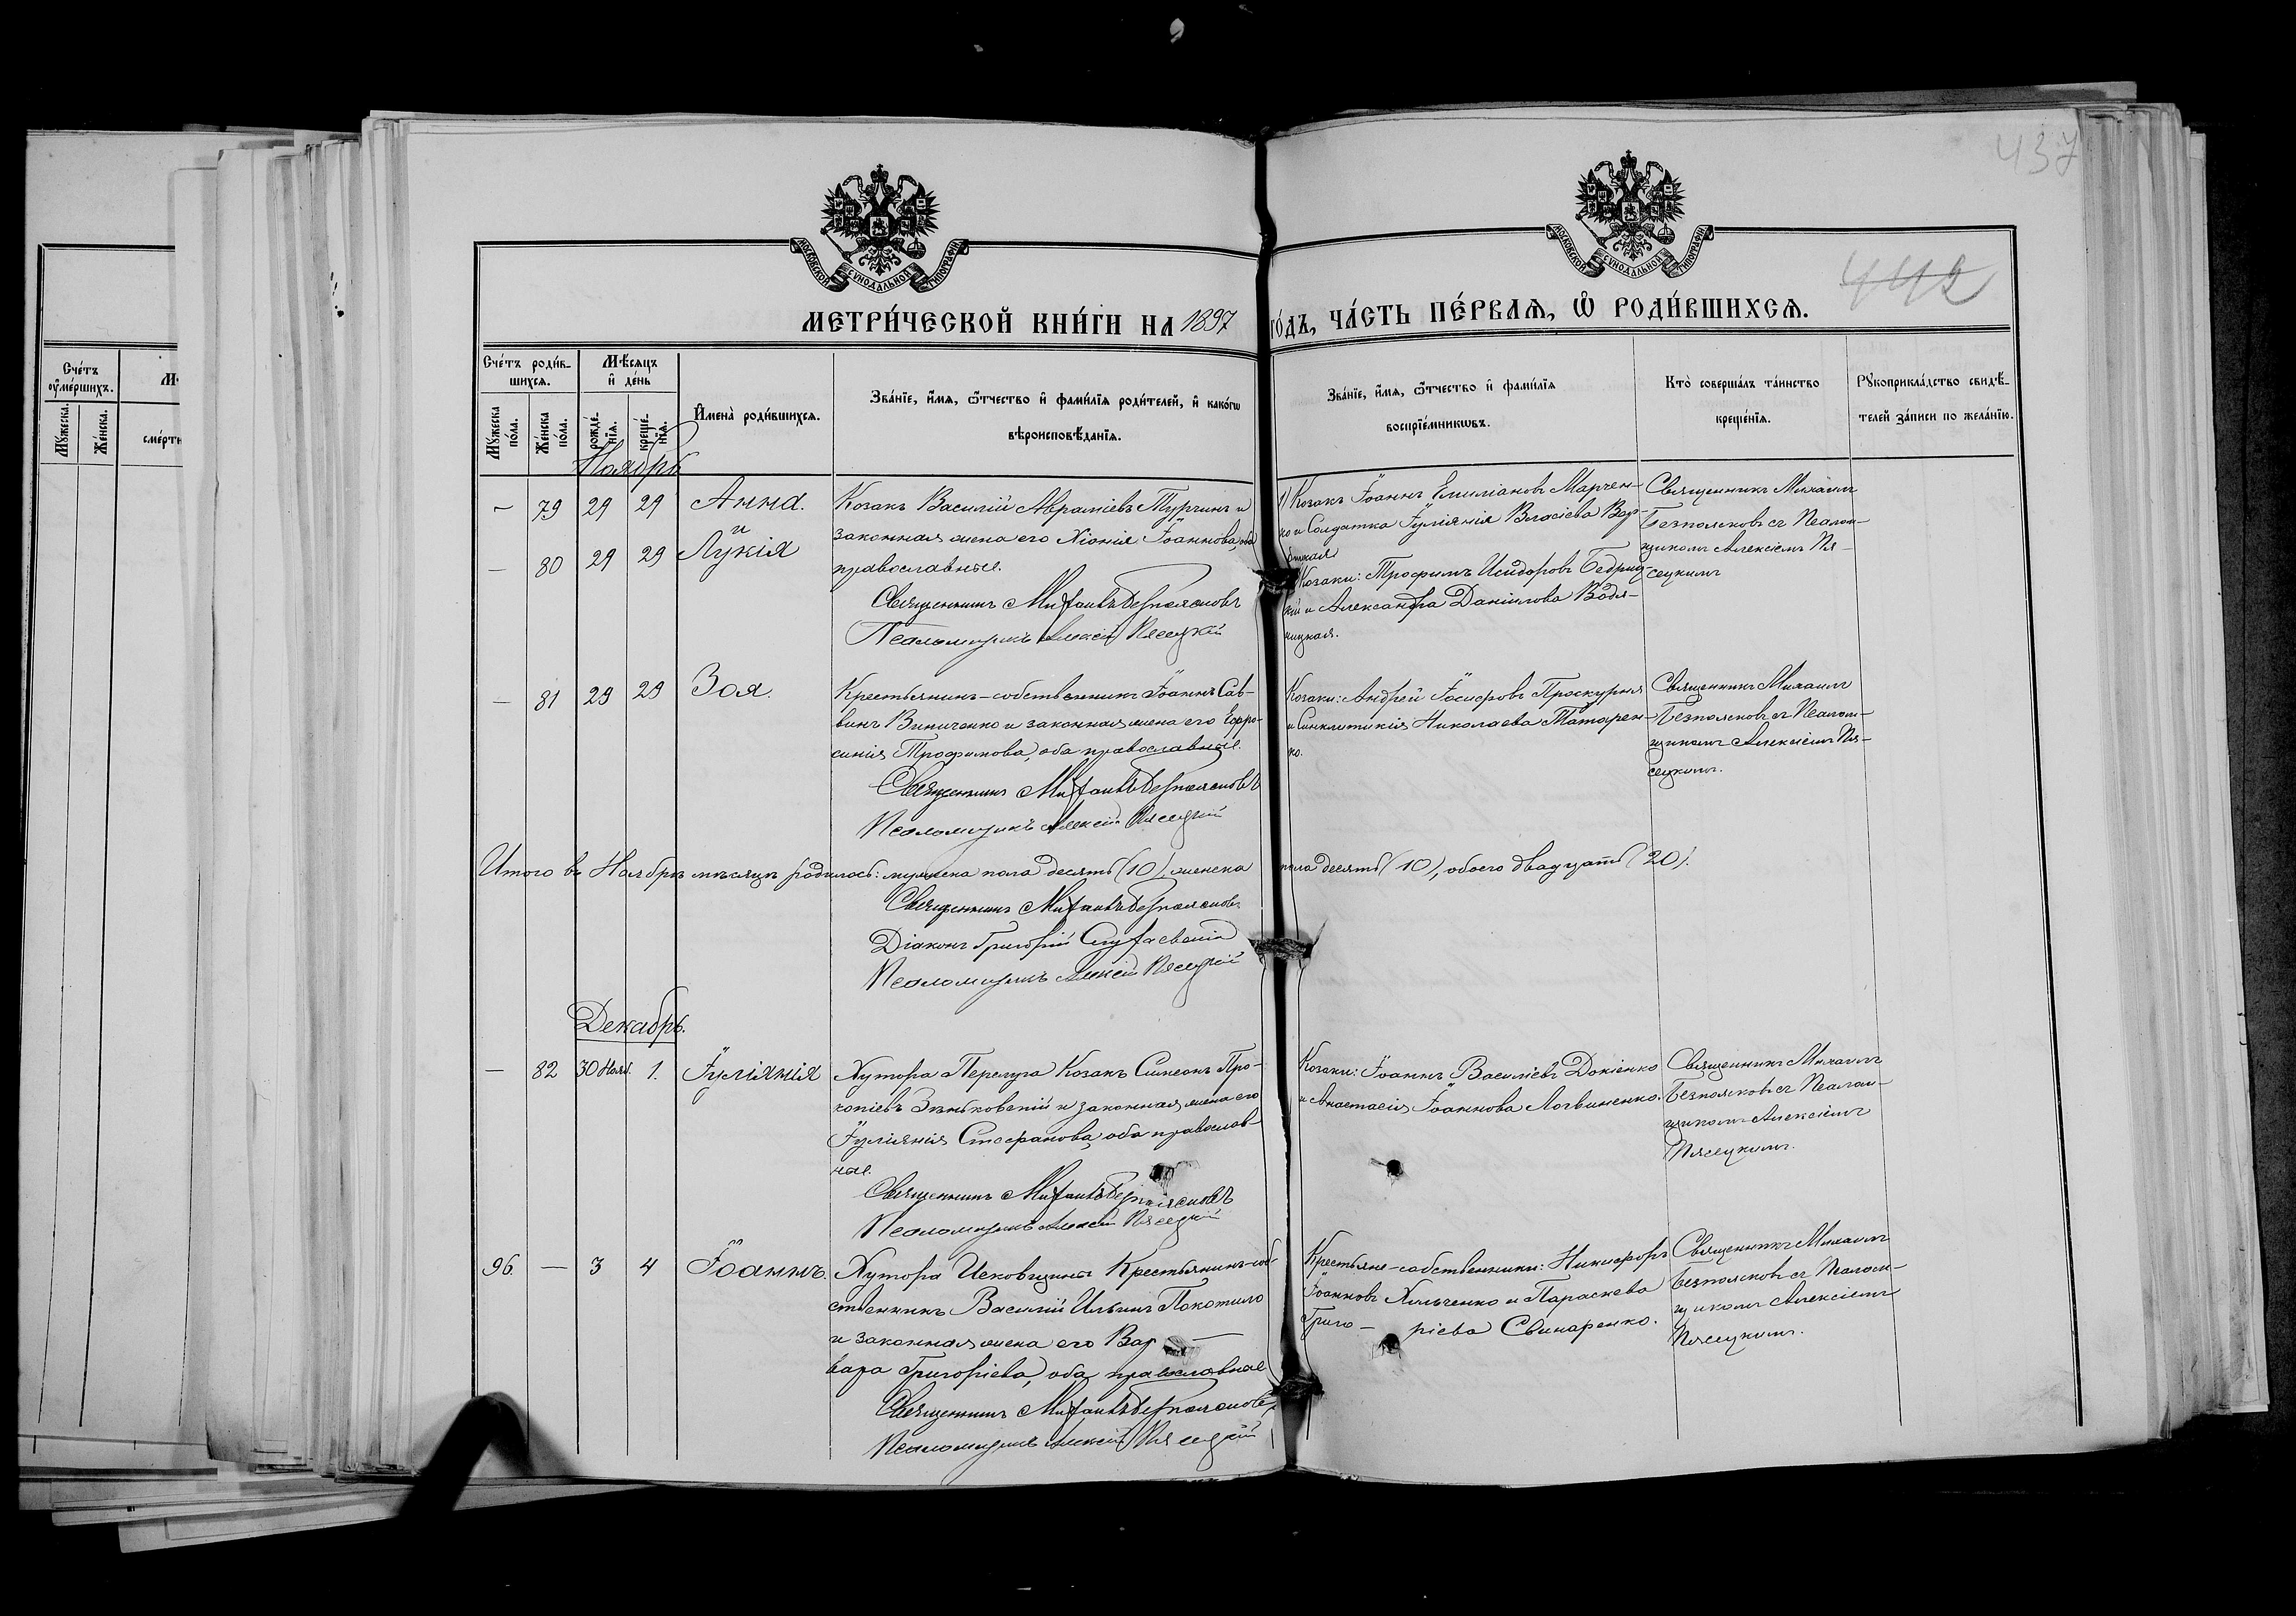 437
442
МОСКОВСКОЙ СѴНОДАЛЬНОЙ ТИПОГРАФІИ
МОСКОВСКОЙ СѴНОДАЛЬНОЙ ТИПОГРАФІИ
МЕТРИ́ЧЕСКОЙ КНИ́ГИ НА 1897 ГО́ДЪ, ЧА́СТЬ ПЕ́РВАѦ, Ѡ҆ РОДИ́ВШИХСѦ.
Сче́тъ ᲂу҆ме́ршихъ.
Мꙋ́жеска.
Же́нска.
сме́рти
Сче́тъ роди́вшихсѧ.
Мꙋ́жеска по́ла.
Же́нска по́ла.
Мѣ́сѧцъ и҆ де́нь
рожде́нїѧ.
креще́нїѧ.
И҆мена̀ роди́вшихсѧ.
Зва́нїе, и҆́мѧ, ѻ҆́тчество и҆ фами́лїѧ роди́телей, и҆ како́гѡ
вѣроисповѣ́данїѧ.
Зва́нїе, и҆́мѧ, ѻ҆́тчество и҆ фами́лїѧ
воспрїе́мникѡвъ.
Кто̀ соверша́лъ та́инство
креще́нїѧ.
Рꙋкоприкла́дство свидѣ́-
телей за́писи по жела́нїю.
Ноябрь
— 79 29 29 Анна.
и
— 80 29 29 Лукія
Козакъ Василій Авраміевъ Турчинъ и
законная жена его Хіонія Іоаннова, оба
православные.
Священникъ Михаилъ Безпоясковъ
Псаломщикъ Алексій Пясецкій
1) Козакъ Іоаннъ Емиліановъ Марчен-
ко и Солдатка Іуліянія Власіева
Козаки: Трофимъ Исидоровъ
и Александра Даніилова Водя-
ницкая.
Священникъ Михаилъ
Безпоясковъ съ Псалом-
щикомъ Алексіемъ Пя-
сецкимъ
— 81 29 29 Зоя.
Крестьянинъ-собственникъ Іоаннъ Сав-
винъ Виниченко и законная жена его Евфро-
синія Трофимова, оба православные.
Священникъ Михаилъ Безпоясковъ
Псаломщикъ Алексій Пясецкій
Козаки: Андрей Іосифовъ Проскурня
и Синклитикія Николаева Татарен-
ко.
Священникъ Михаилъ
Безпоясковъ съ Псалом-
щикомъ Алексіемъ Пя-
сецкимъ.
Итого въ Ноябрѣ мѣсяцѣ родилось: мужеска пола десять (10), женска пола десять (10), обоего двадцать (20).
Священникъ Михаилъ Безпоясковъ
Діаконъ Григорій
Псаломщикъ Алексій Пясецкій
Декабрь.
— 82 30 Нояб. 1. Іуліянія
Хутора Перелуга Козакъ Симеонъ Про-
копіевъ Зѣньковскій и законная жена его
Іуліянія Стефанова, оба православ-
ные.
Священникъ Михаилъ Безпоясковъ
Псаломщикъ Алексій Пясецкій
Козаки: Іоаннъ Василіевъ Докіенко
и Анастасія Іоаннова Логвиненко.
Священникъ Михаилъ
Безпоясковъ съ Псалом-
щикомъ Алексіемъ
Пясецкимъ.
96. — 3 4 Іоаннъ.
Хутора Исковщины Крестьянинъ-соб-
ственникъ Василій Ильинъ Покотило
и законная жена его Вар —
вара Григоріева, оба православные
Священникъ Михаилъ Безпоясковъ
Псаломщикъ Алексій Пясецкій
Крестьяне-собственники: Никифоръ
Іоанновъ Хильченко и Параскева
Григо — ріева Свинаренко.
Священникъ Михаилъ
Безпоясковъ съ Псалом-
щикомъ Алексіемъ
Пясецкимъ.